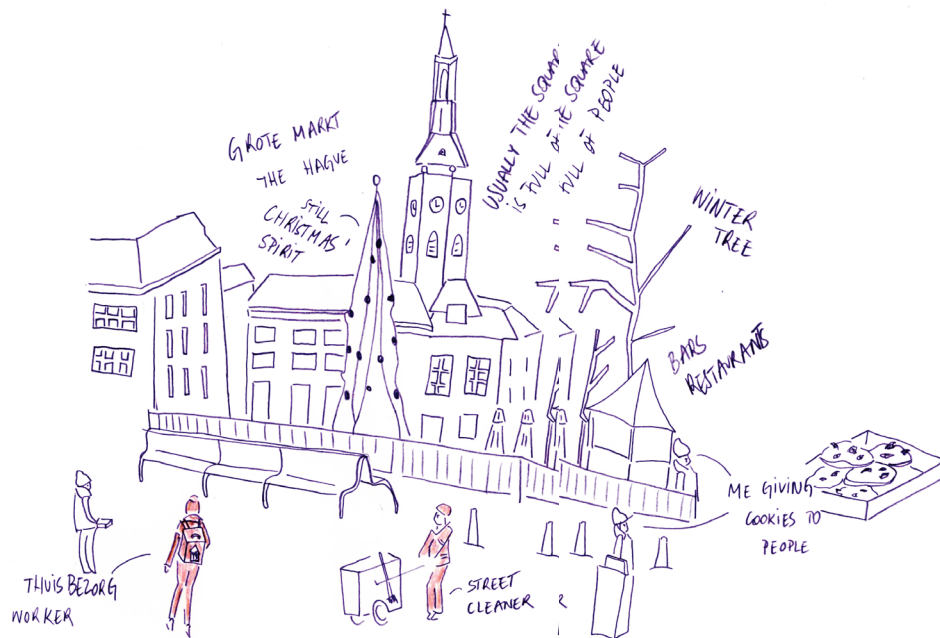 GROTE MARKT
THE HAGUE
STILL
CHRISTMAS
SPIRIT
USUALLY THE SQUAR
IS FULL OF HE SQUARE
FULL OF PEOPLE
WINTER
TREE
BARS
RESTAURANTS
ME GIVING
COOKIES TO
PEOPLE
THUISBEZORG
WORKER
STREET
CLEANER